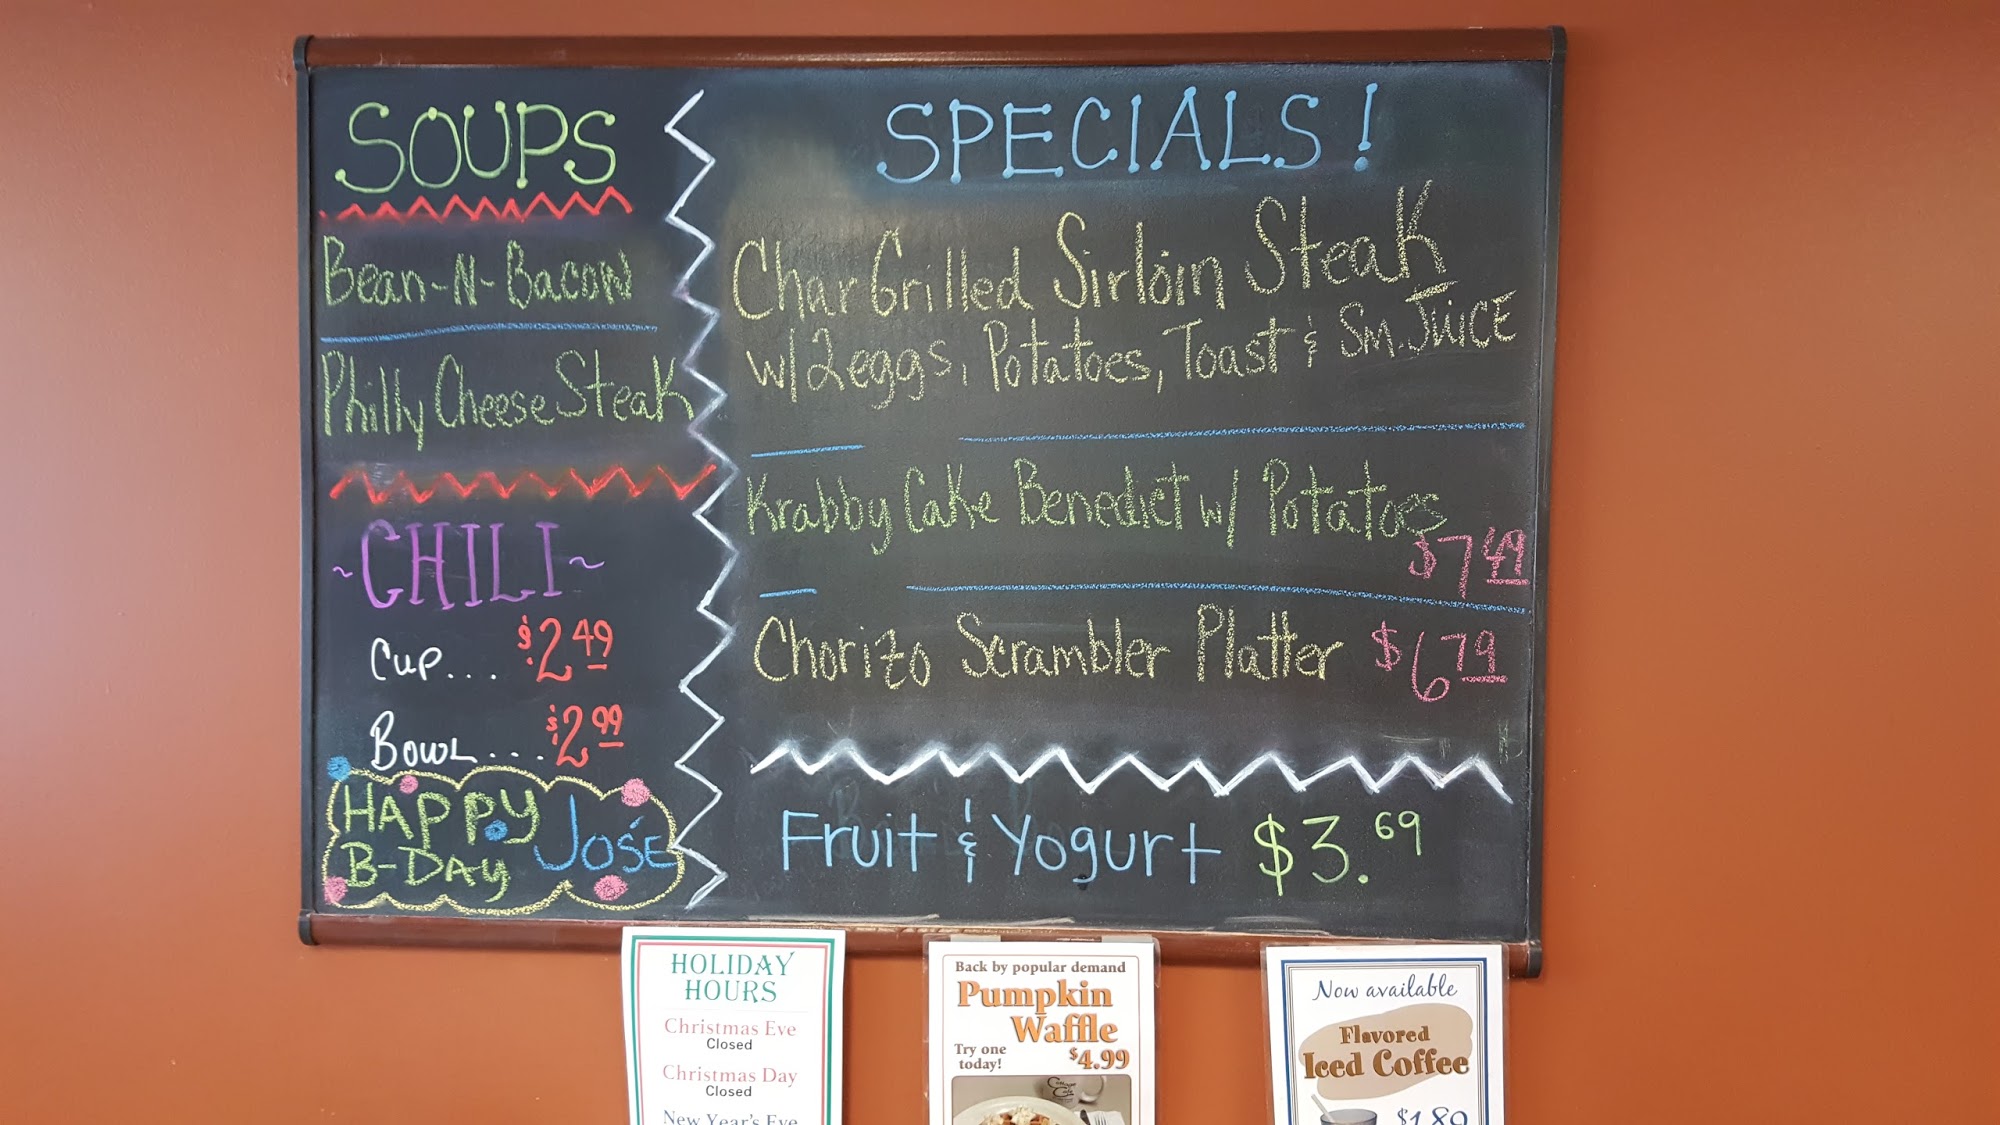 SOUPS
Bean-N-Bacon
Philly Cheese Steak
~CHILI~
Cup... $2 49
Bowl... $2 99
HAPPY
B-DAY JOSÉ
SPECIALS!
Char Grilled Sirloin Steak
w/ 2 eggs, Potatoes, Toast & Sm. Juice
Krabby Cake Benedict w/ Potatoes
$7 49
Chorizo Scrambler Platter $6 79
Fruit & Yogurt $3.69
HOLIDAY
HOURS
Christmas Eve
Closed
Christmas Day
Closed
New Year's Eve
Back by popular demand
Pumpkin
Waffle
Try one
today!
$4.99
Now available
Flavored
Iced Coffee
$1.89